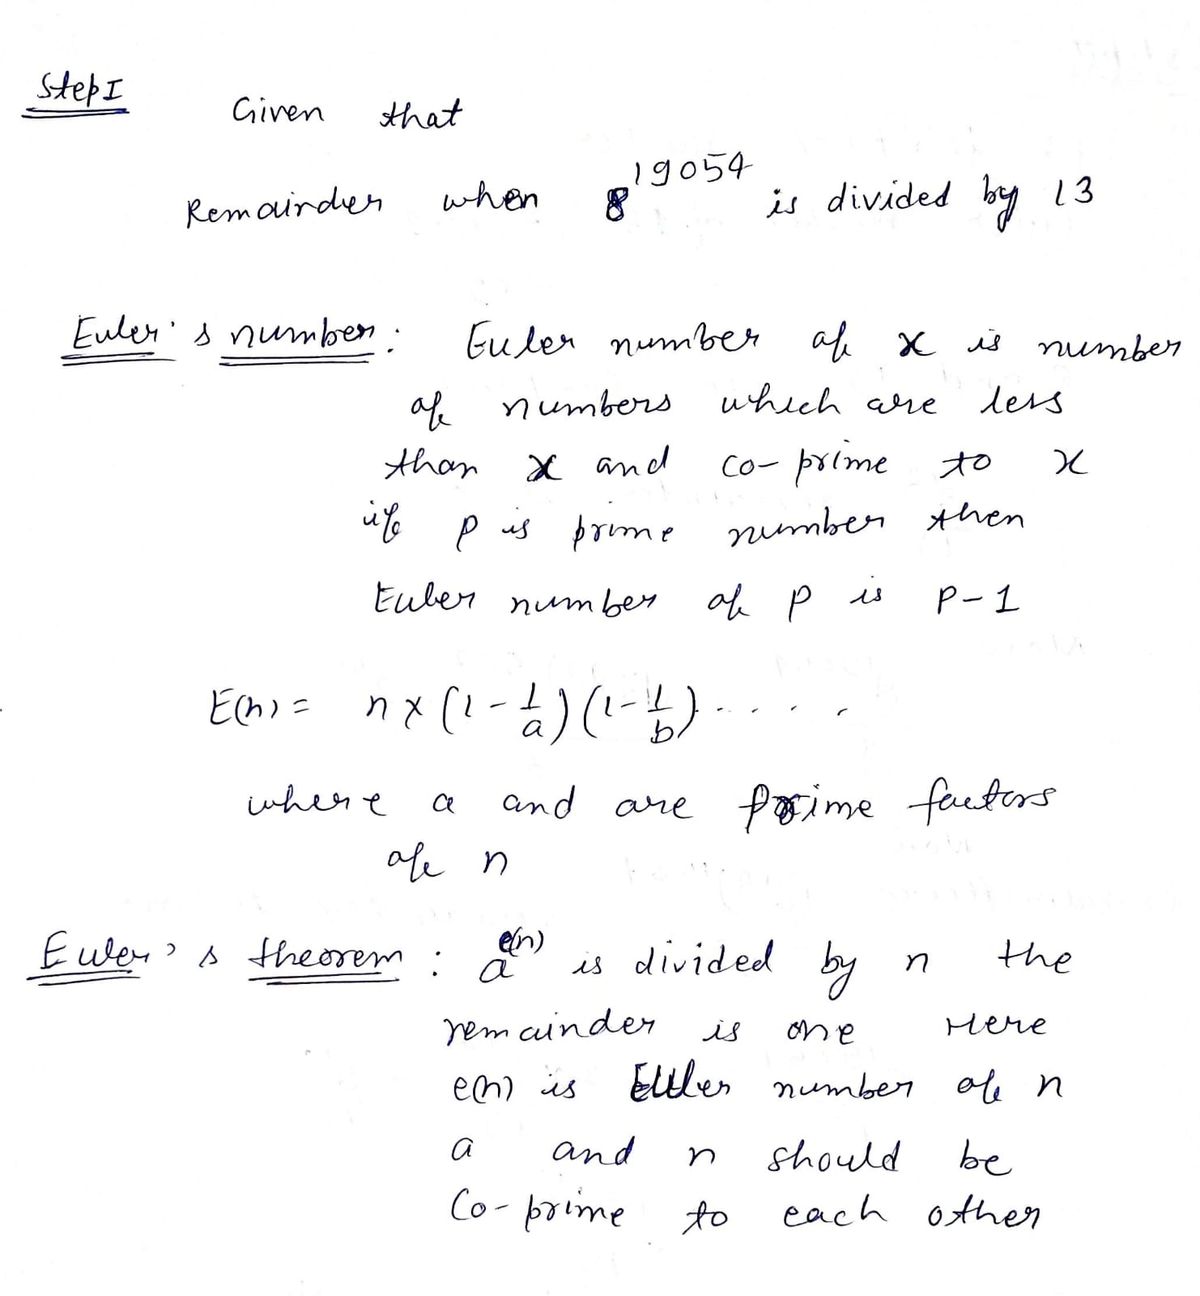 Step I
Given that
Remainder when 8^19054 is divided by 13
Euler's number: Euler number of x is number
of numbers which are less
than x and co-prime to x
if p is prime number then
Euler number of p is p-1
E(n) = n x (1 - 1/a) (1 - 1/b) . . . . .
where a and are prime factors
of n
Euler's theorem : a^e(n) is divided by n the
remainder is one Here
e(n) is Euler number of n
a and n should be
Co-prime to each other